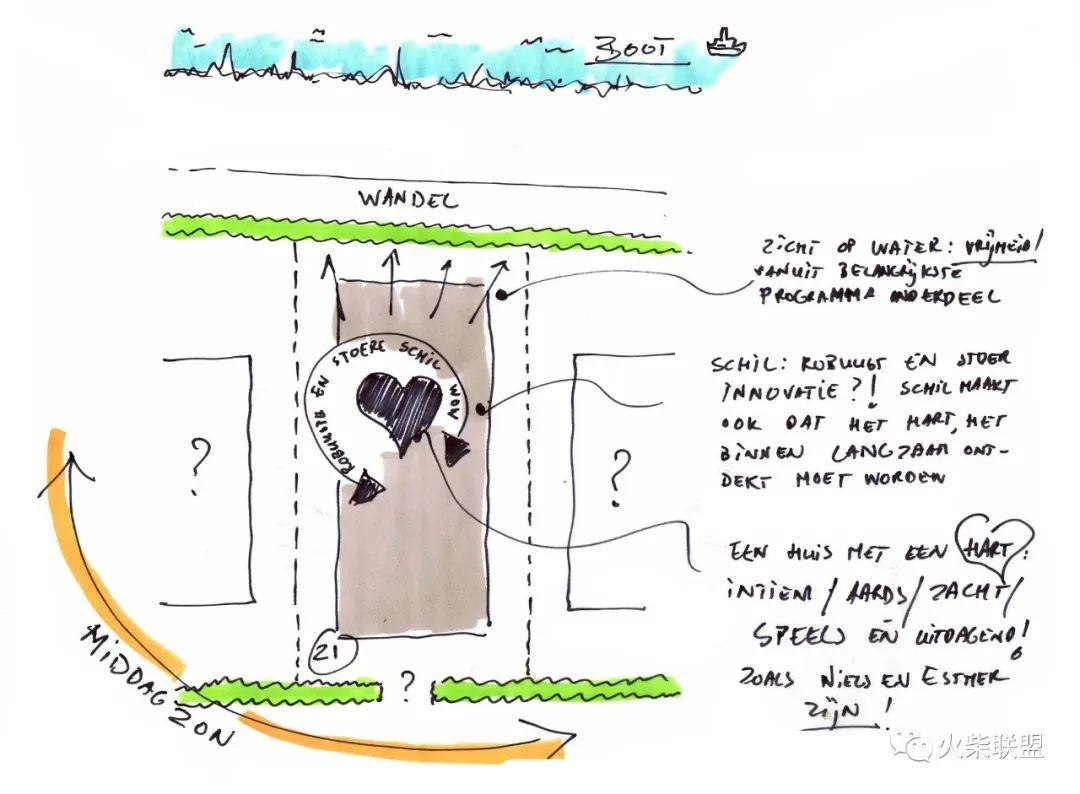 BOOT
WANDEL
ZICHT OP WATER: VRIJHEID!
VANUIT BELANGRIJKSTE
PROGRAMMA ONDERDEEL
ROBUUSTE EN STOERE SCHIL WOW
SCHIL: ROBUUST EN STOER
INNOVATIE?! SCHIL MAAKT
OOK DAT HET HART, HET
BINNEN LANGZAAM ONT-
DEKT MOET WORDEN
?
?
EEN HUIS MET EEN HART:
INTIEM/AARDS/ZACHT/
SPEELS EN UITDAGEND!
ZOALS NIELS EN ESTHER
ZIJN!
21
?
MIDDAG ZON
火柴联盟